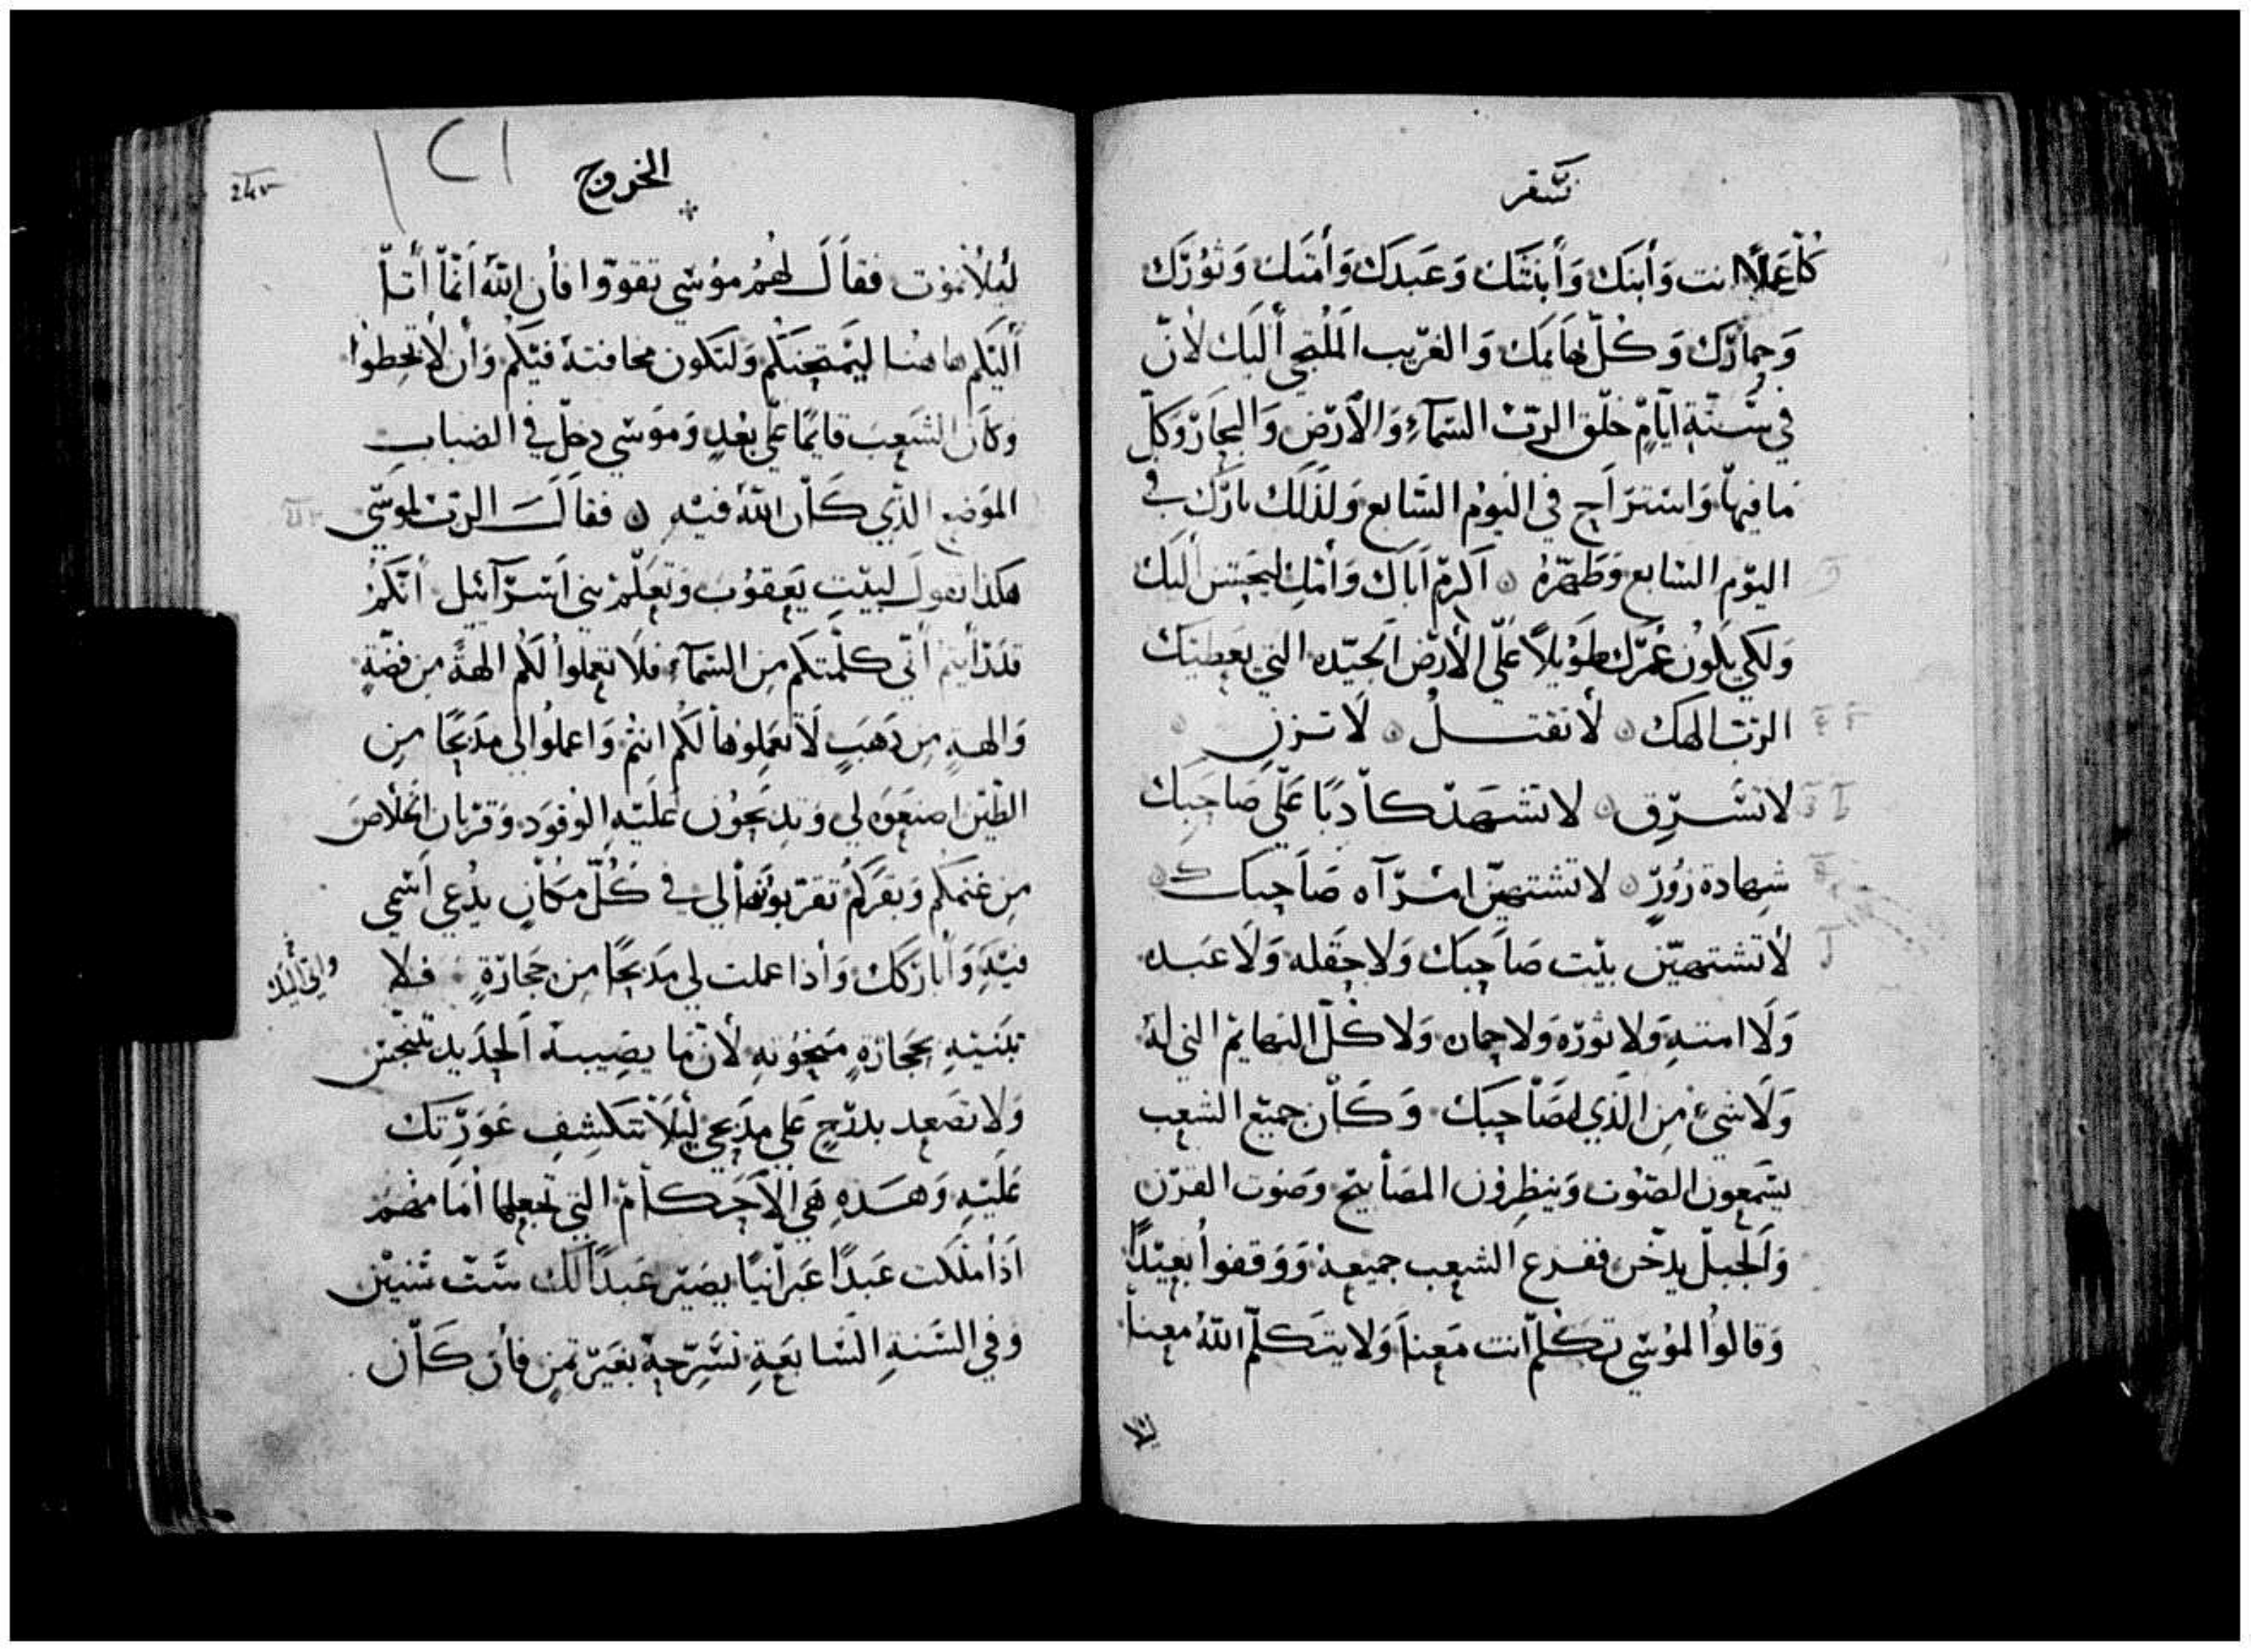 سفر
كل عملا انت وأبنك وأبنتك وعبدك وأمتك وثورك
وحمارك وكل بهايمك والغريب الملتجي أليك لأن
في ستة ايام خلق الرب السمآء والأرض والبحار وكل
ما فيها واستراح في اليوم السابع ولذلك بارك في
اليوم السابع وطهره اكرم اباك وأمك ليحسن أليك
ولكي يكون عمرك طويلاً على الأرض الجيده التي يعطيك
الرب الهك لأ تقتل لا تزن
لا تسرق لا تشهد كاذبًا على صاحبك
شهادة زورٍ لا تشتهين امرآه صاحبك
لأ تشتهين بيت صاحبك ولا حقله ولا عبده
ولا امته ولا ثوره ولا حماره ولا كل البهايم التي له
ولا شيء من الذي لصاحبك وكان جميع الشعب
يسمعون الصوت وينظرون المصابيح وصوت القرن
والجبل يدخن ففزع الشعب جميعه ووقفوا بعيدًا
وقالوا لموسي تكلم انت معنا ولا يتكلم الله معنا
ليلا
الخروج
١٢١
ليلا نموت فقال لهم موسي تقووا فأن الله انما أتا
أليكم هاهنا ليمتحنكم ولتكون مخافته فيكم وأن لا تخطوا
وكان الشعب قايمًا على بعدٍ وموسي دخل في الضباب
الموضع الذي كان الله فيه فقال الرب لموسي
هكذا تقول لبيت يعقوب وتعلم بني اسرآئيل أنكم
قد رأيتم أني كلمتكم من السمآء فلا تعملوا لكم الهةً من فضةٍ
والهةٍ من ذهبٍ لا تعملوها لكم انتم واعملوا لي مذبحًا من
الطين اصنعوه لي وتذبحون عليه الوقود وقربان الخلاص
من غنمكم وبقركم تقربونها لي في كل مكانٍ يدعي اسمي
فيه وأباركك وأذا عملت لي مذبحًا من حجارةٍ فلا
واتي أليك
تبنيه بحجارةٍ منحوته لأن ما يصيبه الحديد يتنجس
ولا تصعد بدرجٍ على مذبحي ليلا تنكشف عورتك
عليه وهذه هي الأحكام التي تجعلها أمامهم
اذا ملكت عبدًا عبرانيًا يصير عبدًا لك ست سنين
وفي السنة السابعة تسرحه بغير ثمنٍ فأن كان